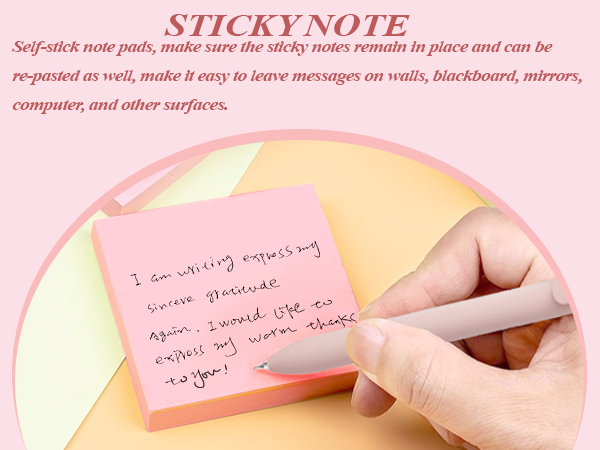 STICKY NOTE
Self-stick note pads, make sure the sticky notes remain in place and can be
re-pasted as well, make it easy to leave messages on walls, blackboard, mirrors,
computer, and other surfaces.
I am writing express my
sincere gratitude
Again. I would like to
express my warm thanks
to you!